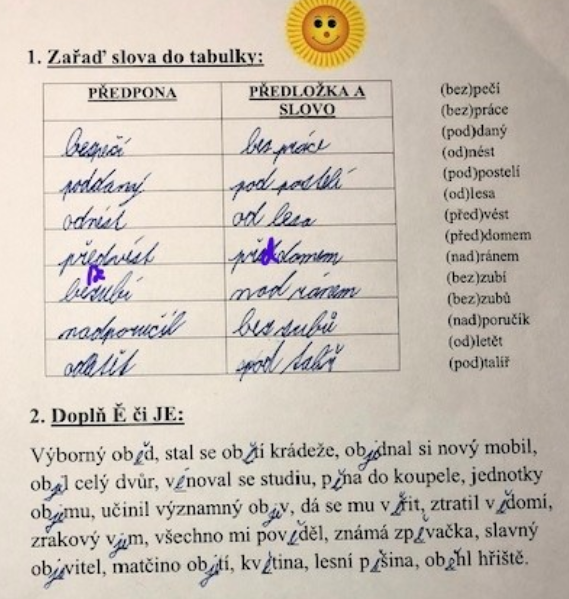 1. Zařaď slova do tabulky:
PŘEDPONA PŘEDLOŽKA A SLOVO
(bez)pečí
bezpečí bez práce
(bez)práce
(pod)daný
poddaný pod postelí
(od)nést
(pod)postelí
odnést od lesa
(od)lesa
(před)vést
předvést před domem
(před)domem
(nad)ránem
bezzubí nad ránem
(bez)zubí
(bez)zubů
nadporučík bez zubů
(nad)poručík
(od)letět
odletět pod talíř
(pod)talíř
2. Doplň Ě či JE:
Výborný oběd, stal se obětí krádeže, objednal si nový mobil,
objel celý dvůr, věnoval se studiu, pěna do koupele, jednotky
objemu, učinil významný objev, dá se mu věřit, ztratil vědomí,
zrakový vjem, všechno mi pověděl, známá zpěvačka, slavný
objevitel, matčino objetí, květina, lesní pěšina, oběhl hřiště.